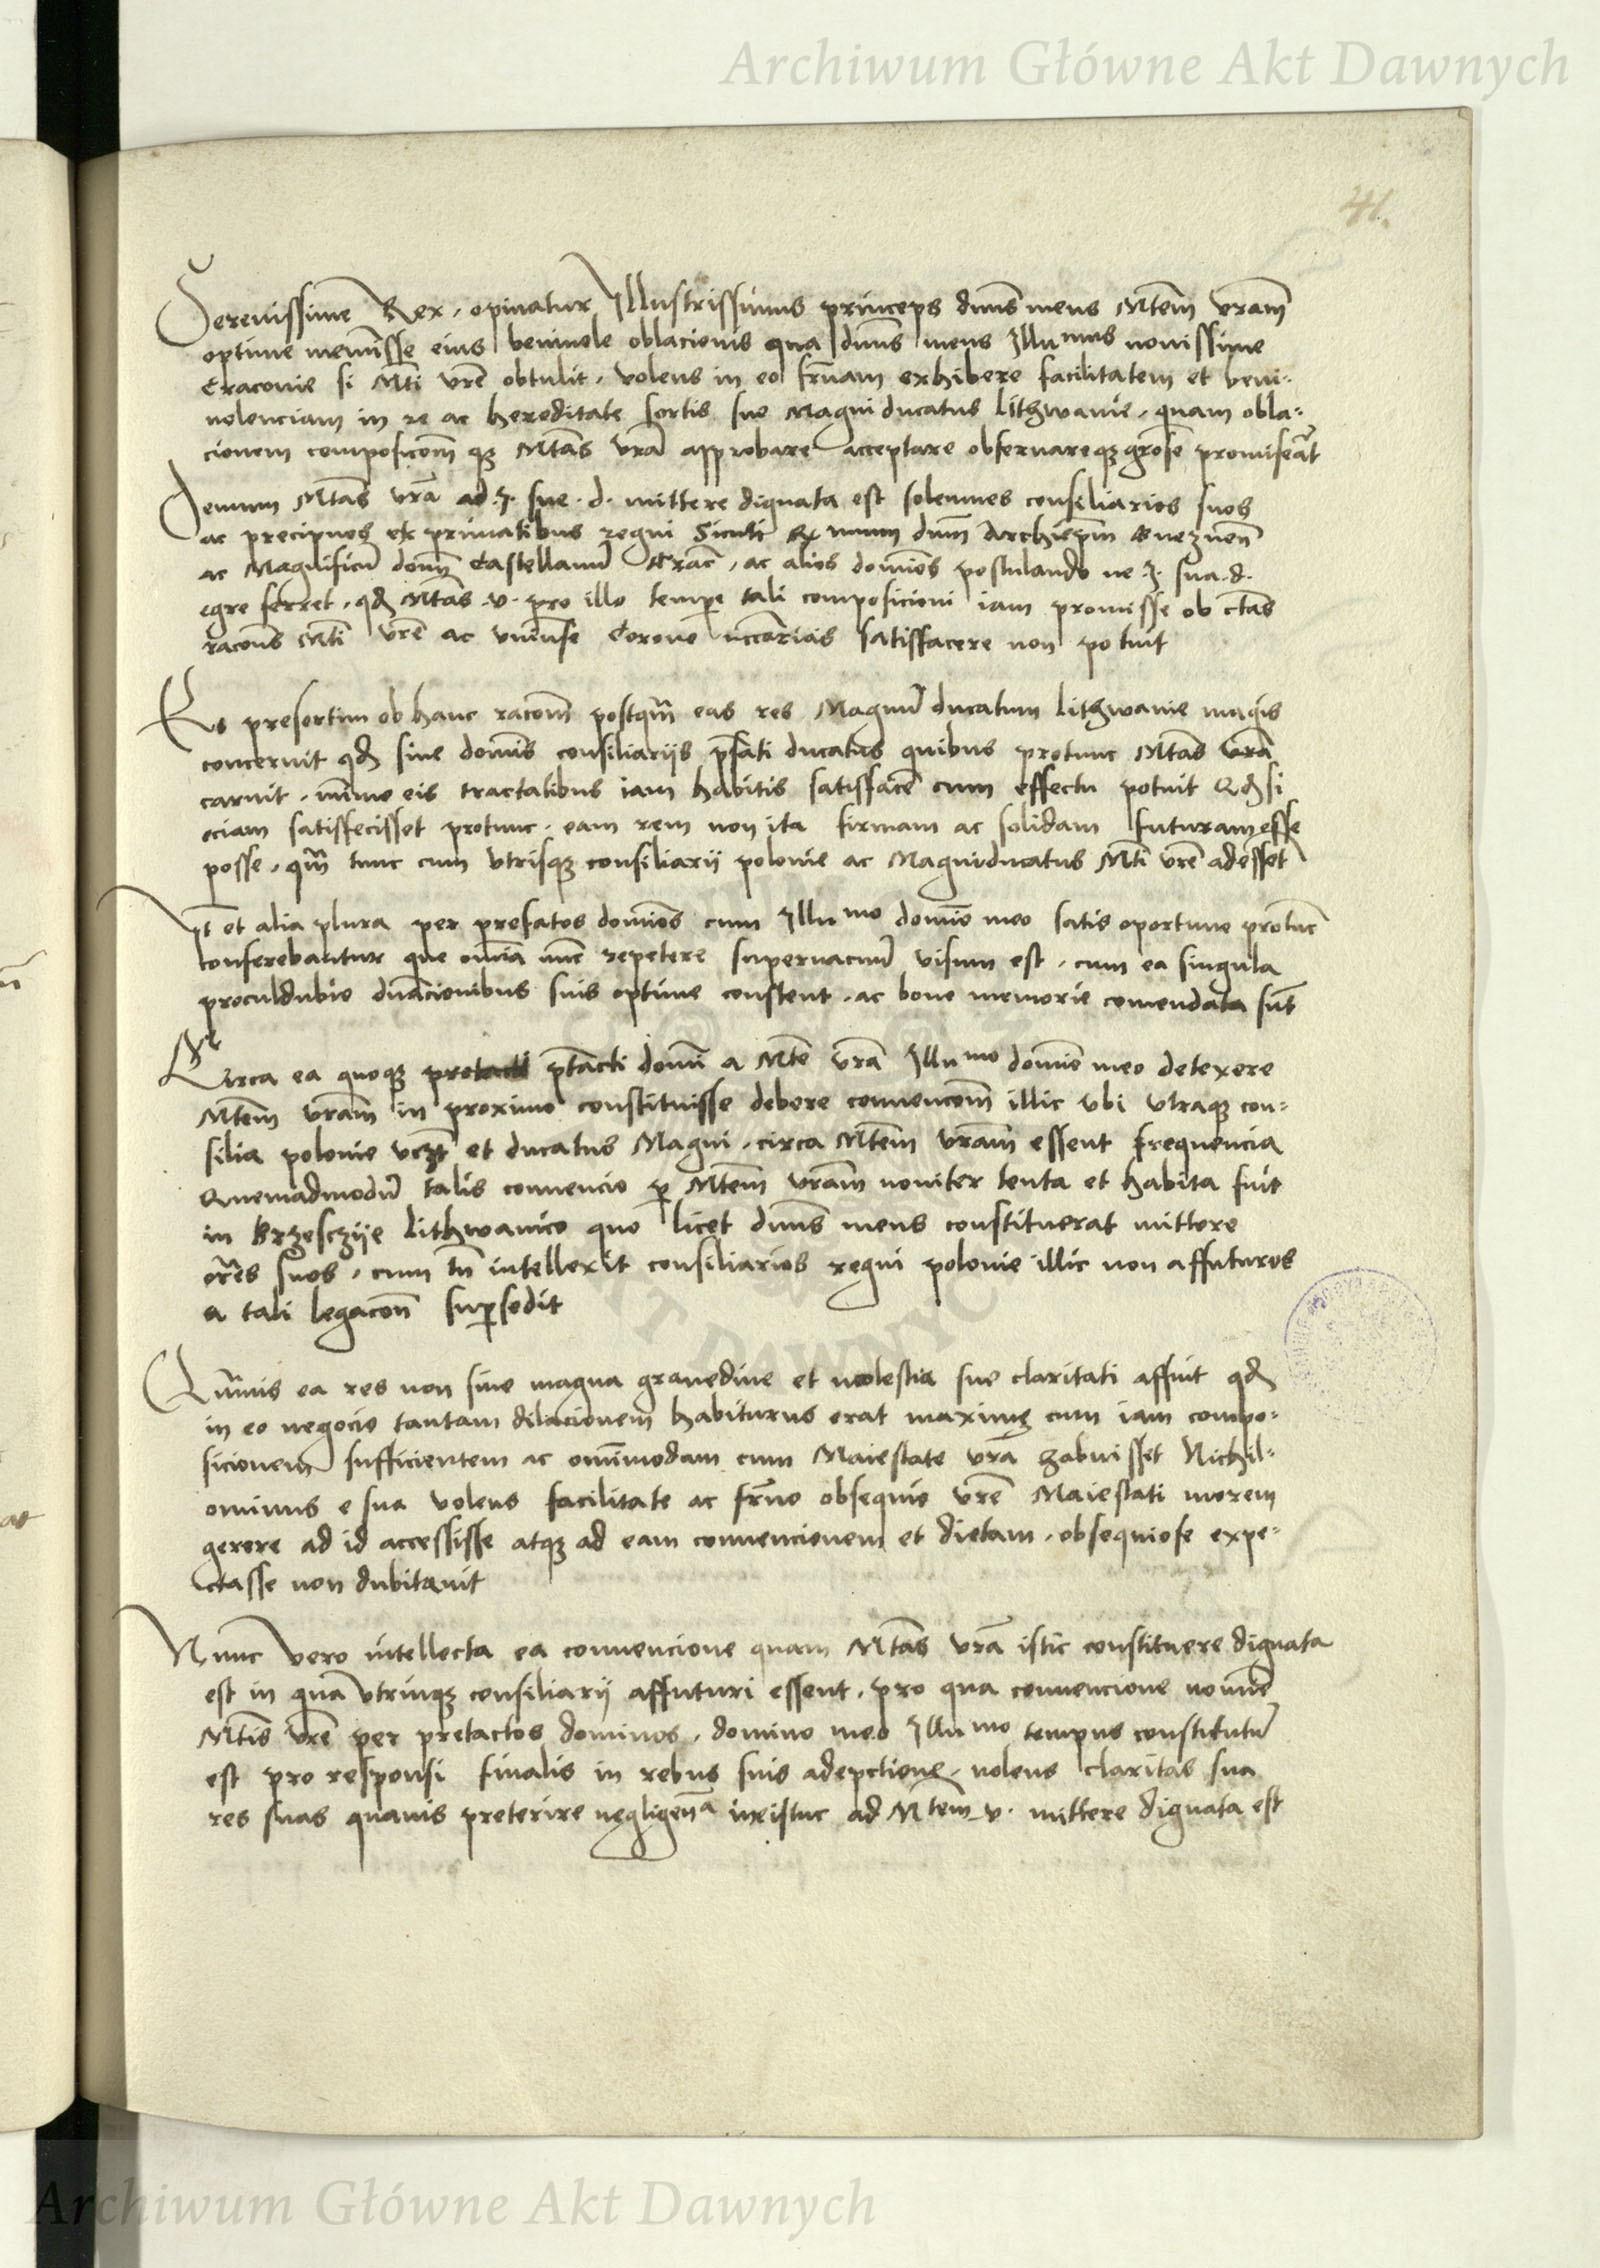 Archiwum Główne Akt Dawnych
41.
Serenissime Rex, opinatur Illustrissimus princeps dnus meus Mtem vram
optime meminisse eius benivole oblacionis qua dnus meus Illumus novissime
Cracovie si Mti vre obtulit, volens in eo frnam exhibere facilitatem et beni-
volenciam in re ac hereditate sortis sue Magni ducatus Lithwanie, quam obla-
cionem composicom qz Mtas vra approbare acceptare observareqz grose promiserat
Demum Mtas vra ad I. sue. d. mittere dignata est solemnes consiliarios suos
ac precipuos ex primatibus regni Sicuti Rx mum dnm Archiepm Gneznen
ac Magnificu domn Castellanu Crac, ac alios domios postulando ne I. sua. d.
egre ferret, qd Mtas .v. pro illo tempe tali composicioni iam promisse ob ctas
racons Mti vre ac universe Corone nccarias satisfacere non potuit
Et presertim ob hanc raconm postqm eas res Magnu ducatum Lithwanie magis
concernit qd sine domis consiliariis pfati ducatus quibus protunc Mtas vra
caruit, minime eis tractatibus iam habitis satisface cum effectu potuit Qd si
eciam satisfecisset protunc, eam rem non ita firmam ac solidam futuram esse
posse, qm tunc cum utrisqz consiliarii polonie ac Magni ducatus Mti vre adesset
It et alia plura per prefatos domios cum Illumo domio meo satis oportune protunc
conferebantur que omia nunc repetere supervacuu visum est, cum ea singula
proculdubio dnacionibus suis optime constent, ac bone memorie comendata sut
Circa ea quoqz ptacti domi a Mte vra Illumo domio meo detexere
Mtem vram in proximo constituisse debere convenconm illic ubi utraqz con-
silia polonie vczt et ducatus Magni, circa Mtem vram essent frequencia
Quemadmodu talis convencio p Mtem vram noviter tenta et habita fuit
in Brzesczije Lithwanico quo licet dnus meus constituerat mittere
orres suos, cum tn intellexit consiliarios regni polonie illic non affuturos
a tali legacon supsedit
Qumvis ea res non sine magna gravedine et molestia sue claritati affuit qd
in eo negocio tantam dilacionem habiturus erat maxime cum iam compo-
sicionem sufficientem ac omnimodam cum Maiestate vra habuisset Nichil-
ominus e sua volens facilitate ac frno obsequio vre Maiestati morem
gerere ad id accessisse atqz ad eam convencionem et dietam, obsequiose expe-
ctasse non dubitavit
Nunc vero intellecta ea convencione quam Mtas vra istic constituere dignata
est in qua utrinqz consiliarii affuturi essent, pro qua convencione nomine
Mtis vre per pretactos dominos, domino meo Illumo tempus constitutu
est pro responsi finalis in rebus suis adepctione, nolens claritas sua
res suas quavis preterire negligena istuc ad Mtem v. mittere dignata est
Archiwum Główne Akt Dawnych